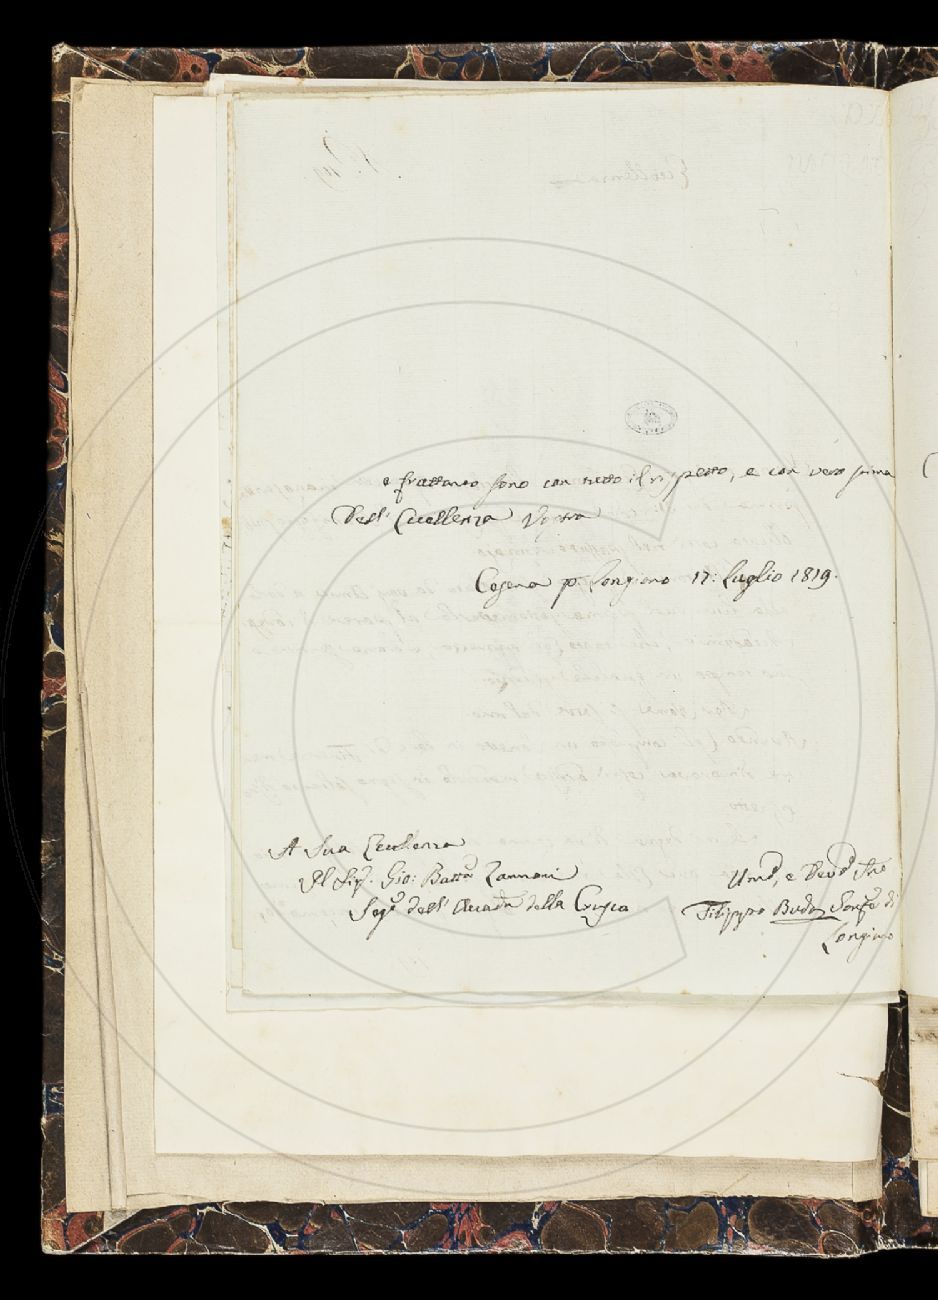 e frattanto sono con tutto il rispetto, e con vera stima
Dell' Eccellenza Vostra
Cesena p. Longiano 17: Luglio 1819.
A Sua Eccellenza
Il Sigr. Gio: Batta Zannoni
Segr dell' Accada della Crusca
Umo, e Devo
Filippo di
Longiano